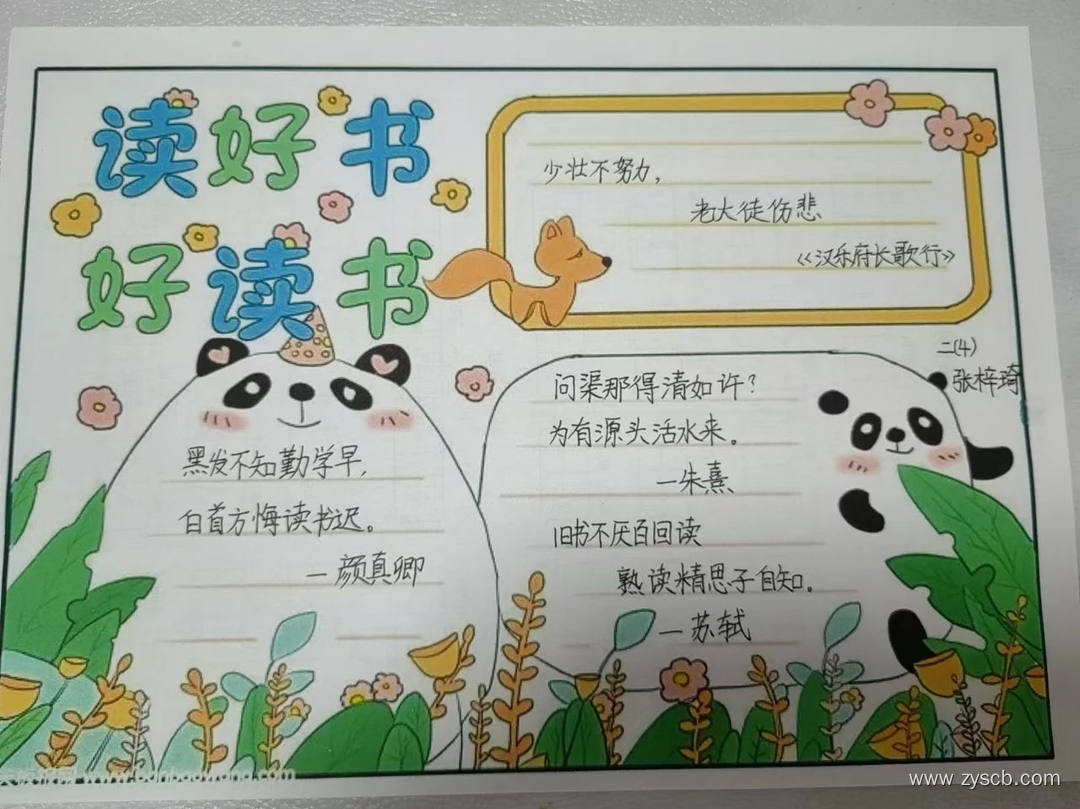 读好书
好读书
少壮不努力，
老大徒伤悲
《汉乐府长歌行》
二(4)
张梓琦
黑发不知勤学早，
白首方悔读书迟。
—颜真卿
问渠那得清如许？
为有源头活水来。
—朱熹
旧书不厌百回读
熟读精思子自知。
—苏轼
www.zyscb.com